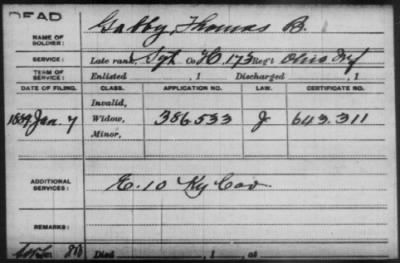 DEAD
NAME OF SOLDIER: Gabby Thomas B.
SERVICE: Late rank, Sgt Co. H, 173 Reg't Ohio Inf
TERM OF SERVICE: Enlisted , 1 Discharged , 1
DATE OF FILING. CLASS. APPLICATION NO. LAW. CERTIFICATE NO.
Invalid,
1889 Jan. 7 Widow, 386533 J 643.311
Minor,
ADDITIONAL SERVICES: E. 10 Ky Cav
REMARKS:
Died , 1 , at